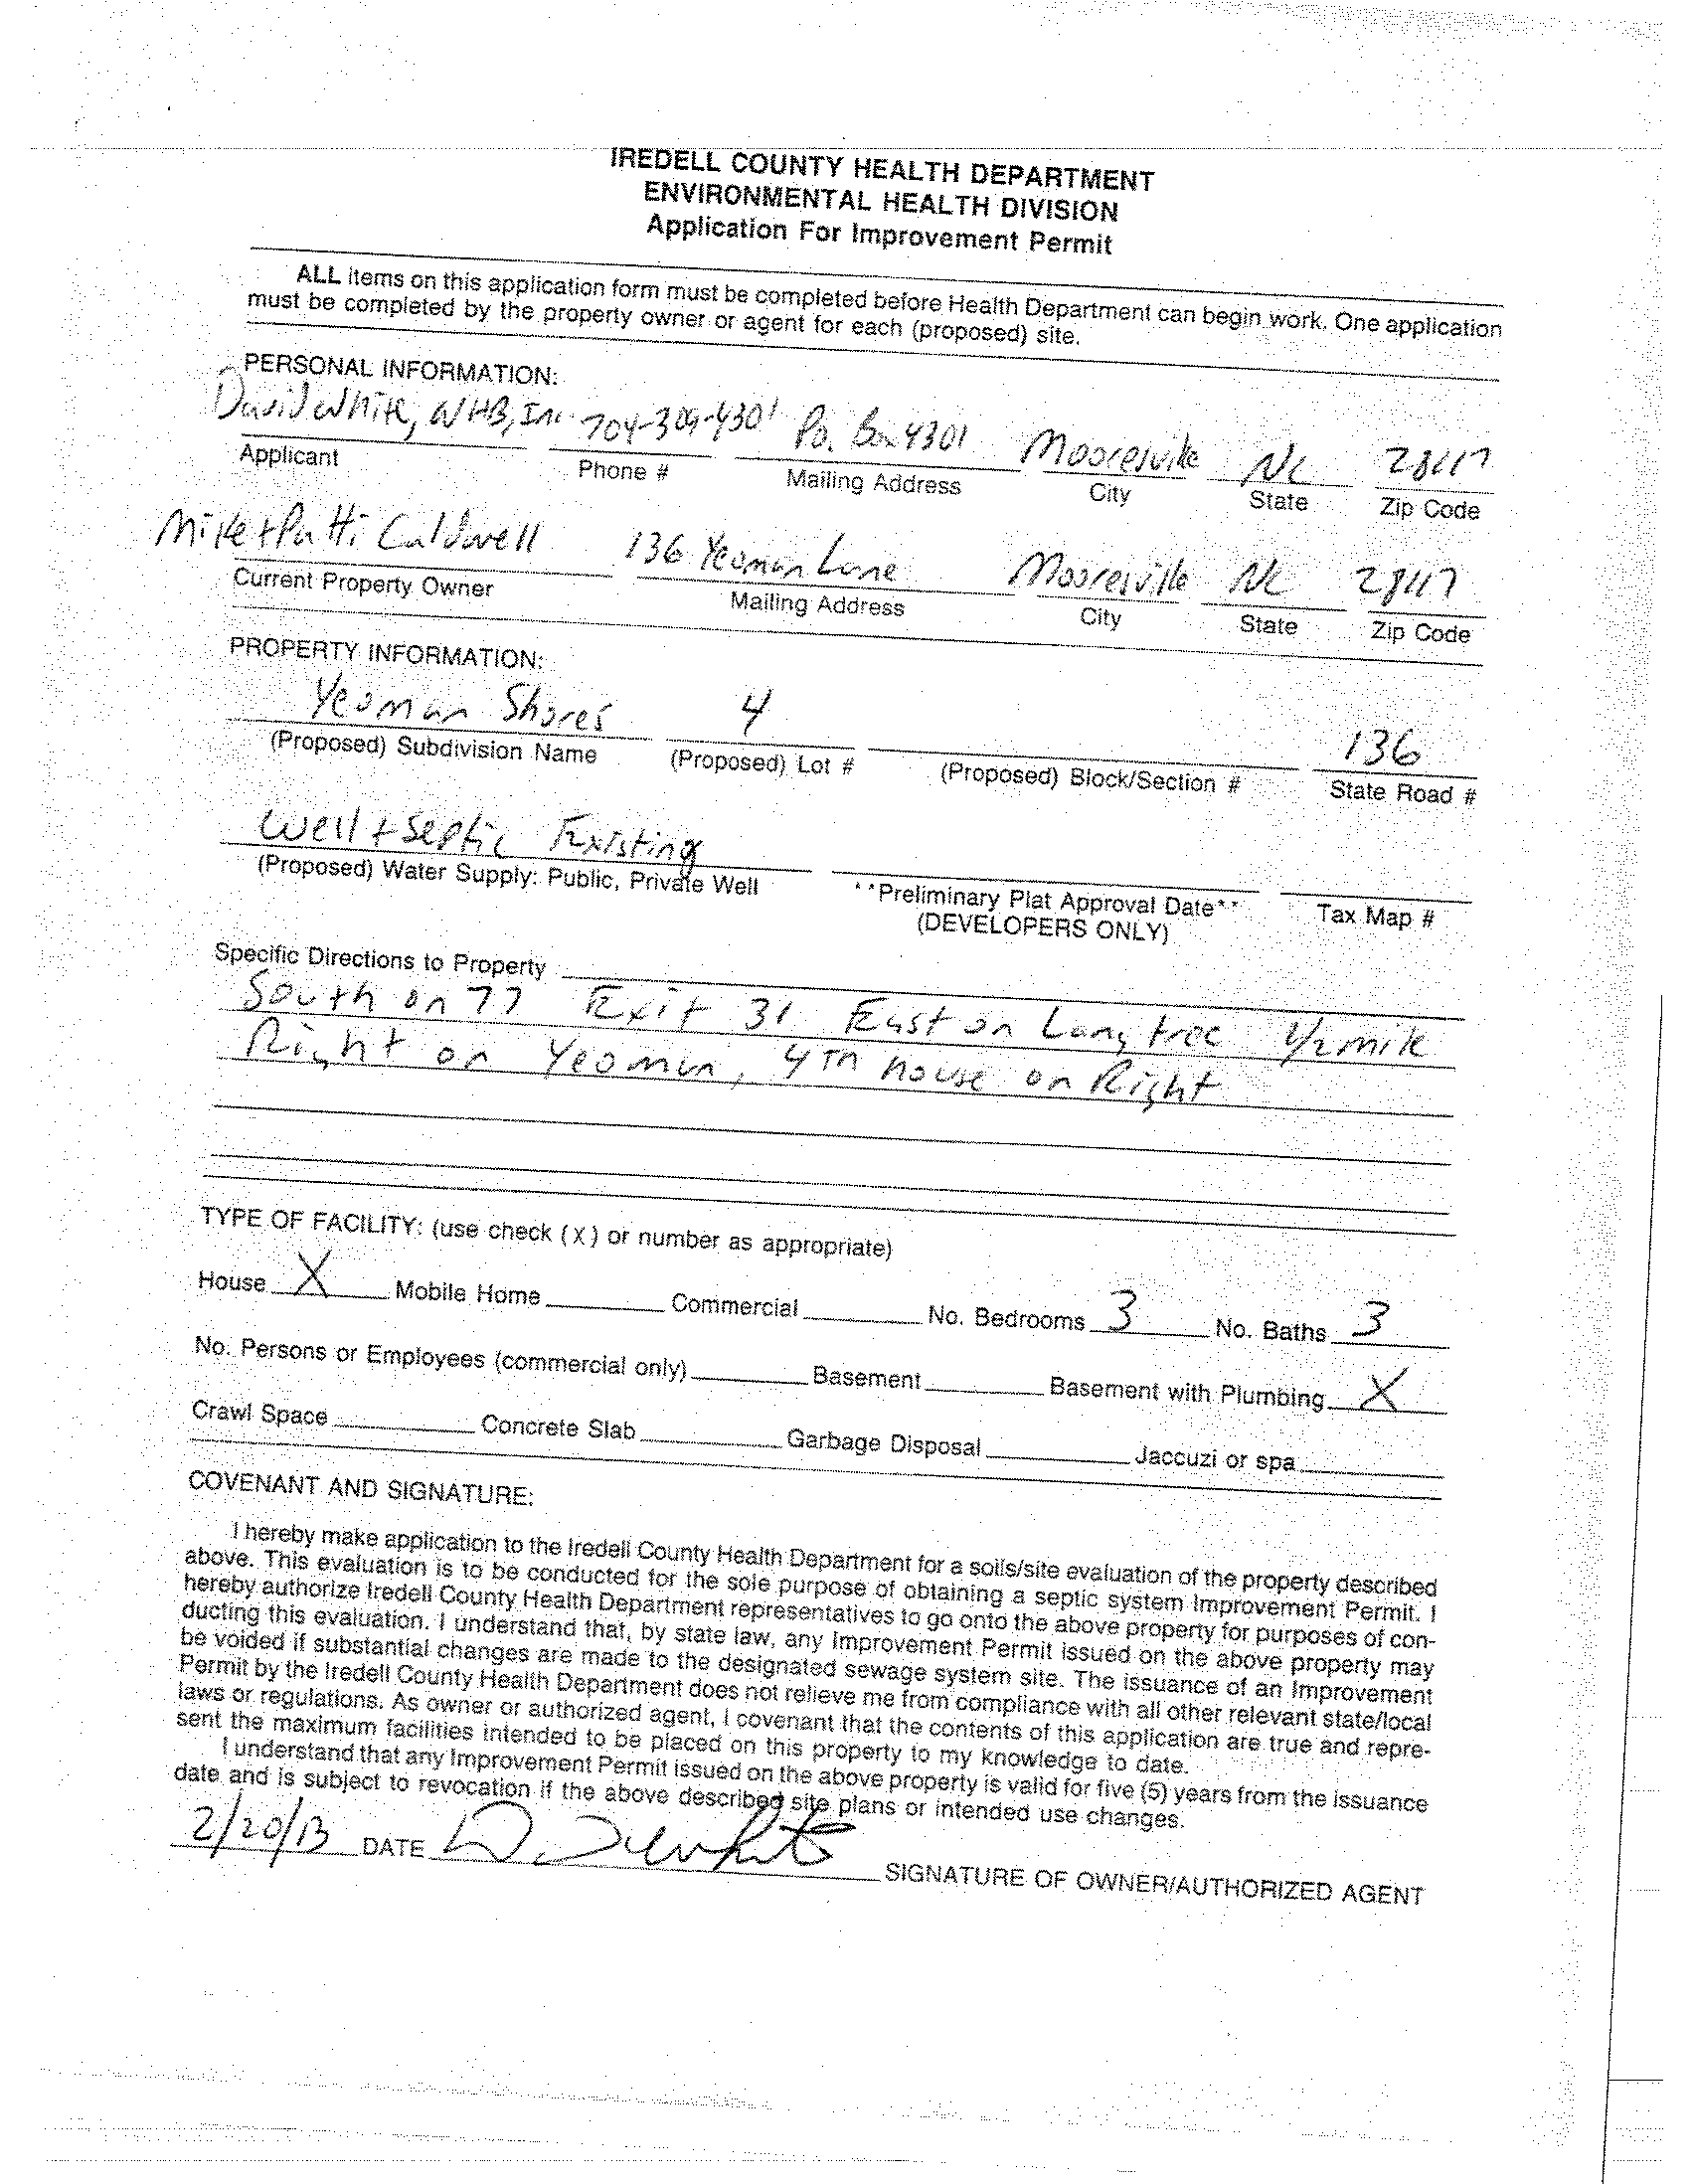 IREDELL COUNTY HEALTH DEPARTMENT
ENVIRONMENTAL HEALTH DIVISION
Application For Improvement Permit
ALL items on this application form must be completed before Health Department can begin work. One application
must be completed by the property owner or agent for each (proposed) site.
PERSONAL INFORMATION:
David White, WHB, Inc 704-309-4301 P.O. Box 4301 Mooresville NC 28117
Applicant Phone # Mailing Address City State Zip Code
Mike + Patti Caldwell 136 Yeoman Lane Mooresville NC 28117
Current Property Owner Mailing Address City State Zip Code
PROPERTY INFORMATION:
Yeoman Shores 4 136
(Proposed) Subdivision Name (Proposed) Lot # (Proposed) Block/Section # State Road #
Well + Septic Existing
(Proposed) Water Supply: Public, Private Well **Preliminary Plat Approval Date** Tax Map #
(DEVELOPERS ONLY)
Specific Directions to Property
South on 77 Exit 31 East on Langtree 1/2 mile
Right on Yeoman, 4th house on Right
TYPE OF FACILITY: (use check (X) or number as appropriate)
House X Mobile Home Commercial No. Bedrooms 3 No. Baths 3
No. Persons or Employees (commercial only) Basement Basement with Plumbing X
Crawl Space Concrete Slab Garbage Disposal Jaccuzi or spa
COVENANT AND SIGNATURE:
I hereby make application to the Iredell County Health Department for a soils/site evaluation of the property described
above. This evaluation is to be conducted for the sole purpose of obtaining a septic system Improvement Permit. I
hereby authorize Iredell County Health Department representatives to go onto the above property for purposes of con-
ducting this evaluation. I understand that, by state law, any Improvement Permit issued on the above property may
be voided if substantial changes are made to the designated sewage system site. The issuance of an Improvement
Permit by the Iredell County Health Department does not relieve me from compliance with all other relevant state/local
laws or regulations. As owner or authorized agent, I covenant that the contents of this application are true and repre-
sent the maximum facilities intended to be placed on this property to my knowledge to date.
I understand that any Improvement Permit issued on the above property is valid for five (5) years from the issuance
date and is subject to revocation if the above described site plans or intended use changes.
2/20/13 DATE SIGNATURE OF OWNER/AUTHORIZED AGENT